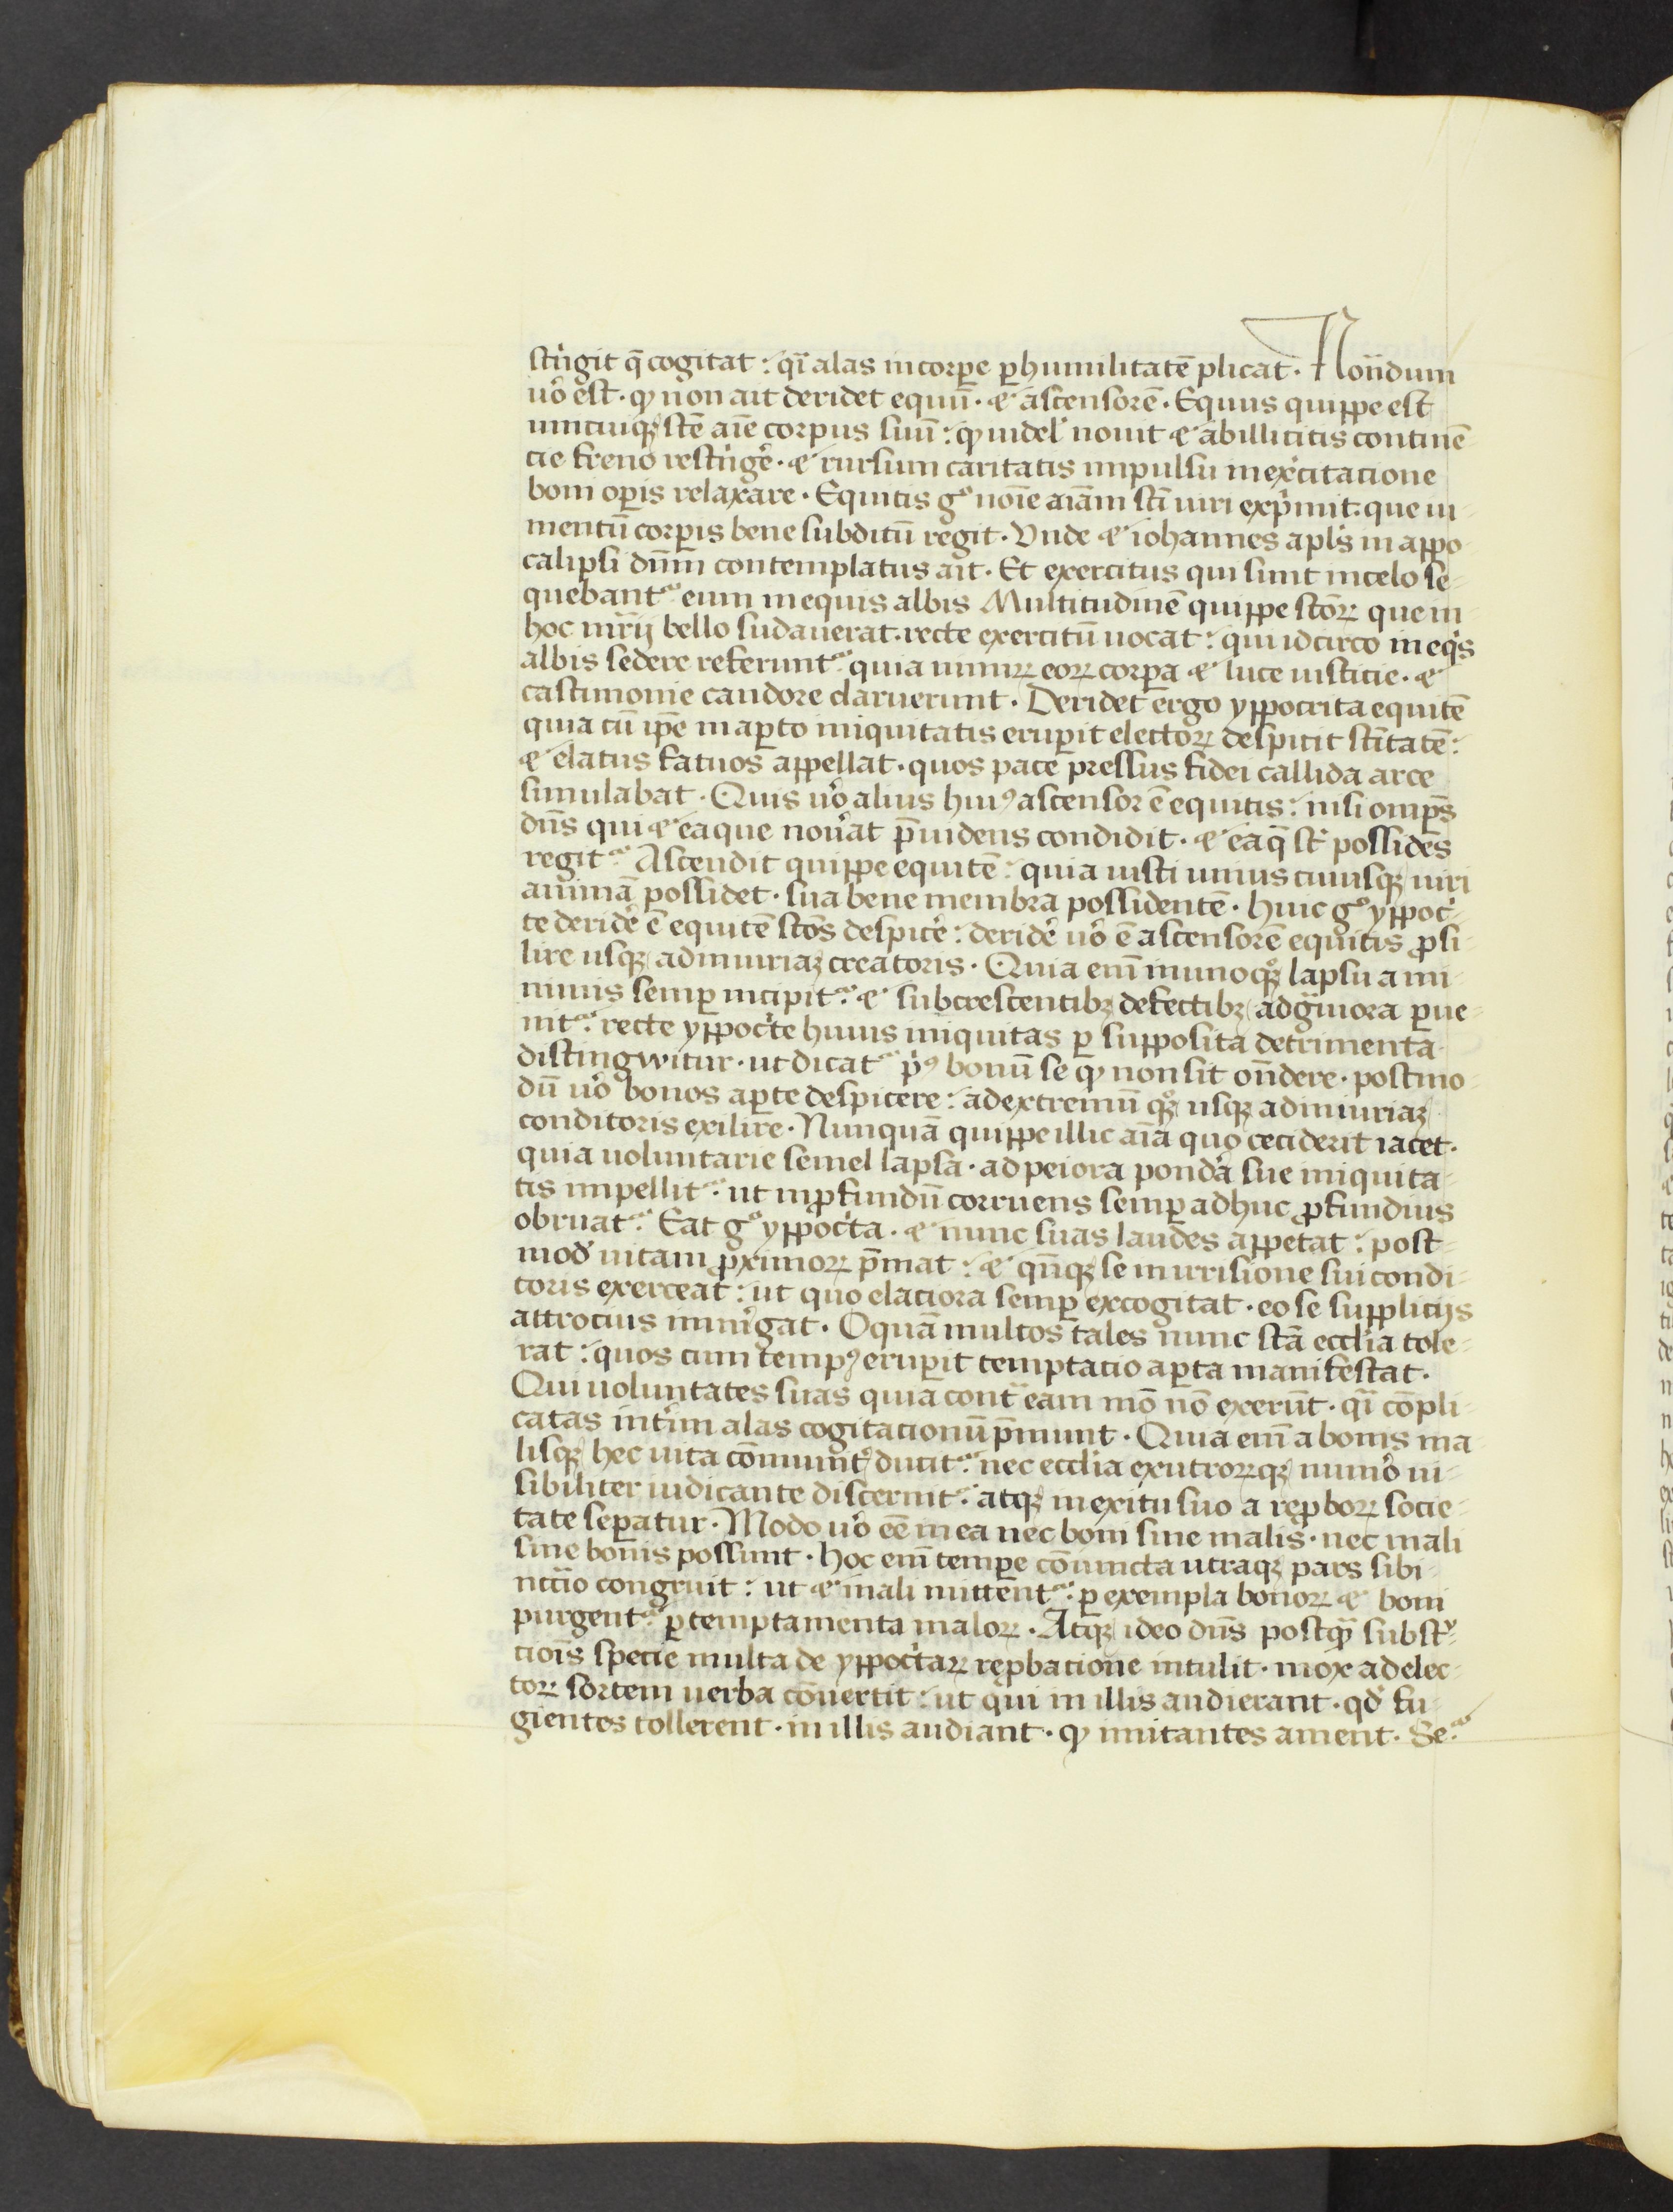 stͥngit q̄ cogitat : qͣi alas in corꝑe ꝑ humilitatē plicat · Nondum
uͦo est · ꝙ non ait deridet equū · ⁊ ascensorē · Equus quippe est
uniciuiqꝫ stē aīe corpus suū : ꝙ uidelꝫ nouit ⁊ ab illicitis continē
cie freno restͥngere · ⁊ rursum caritatis impulsu in exercitacione
boni oꝑis relaxare · Equitis gͦ noīe aīam sti uiri expͥmit · que iu
mentū corꝑis bene subditū regit · Unde ⁊ iohannes apl's in appo
calipsi dn̄m contemplatus ait · Et exercitus qui sunt in celo se
quebantᷣ eum in equis albis Multitudinē quippe stōꝝ que in
hoc mr̄ij bello sudauerat · recte exercitū uocat : qui idcirco in eqͥs
albis sedere referuntᷣ quia nimiꝝ eoꝝ corꝑa ⁊ luce iusticie · ⁊
castimonie candore claruerunt · Deridet ergo yppocrita equitē
quia cū ip̄e in aꝑto iniquitatis eruꝑit electoꝝ despicit stītatē :
⁊ elatus fatuos appellat · quos pace pressus fidei callida arce
simulabat · Quis uͦo alius huiꝰ ascensor ē equitis : nisi omp̄s
dn̄s qui ⁊ ea que non erāt p̄uidens condidit · ⁊ ea q̄ st̄ possidēs
regitᷣ Ascendit quippe equitē : quia iusti unius cuiusqꝫ uiri
animā possidet · sua bene membra possidentē · Huic gͦ yppocͥ
te deridere ē equitē stōs despicere : deridere uͦo ē ascensorē equitis ꝓsi
lire usqꝫ ad iniuriaꝫ creatoris · Quia enī in unoqͦqꝫ lapsu a mi
nimis semꝑ incipitᷣ ⁊ subcrescentibꝫ defectibꝫ ad gͣuiora ꝑue
nitᷣ recte yppocͥte huius iniquitas ꝑ supposita detrimenta
distingwitur · ut dicatᷣ pͥꝰ bonū se ꝙ non sit on̄dere · postmo
dū uͦo bonos aꝑte despicere : ad extremū qͦqꝫ usqꝫ ad iniuriaꝫ
conditoris exilire · Nunquā quippe illic aīa quo ceciderit iacet ·
quia uoluntarie semel lapsa · ad peiora pondere sue iniquita
tis impellitᷣ ut in ꝓfundū corruens semꝑ adhuc ꝓfundius
obruatᷣ Eat gͦ yppocͥta · ⁊ nunc suas laudes appetat : post
modͦ uitam ꝓximoꝝ p̄mat : ⁊ qn̄qꝫ se in irrisione sui condi
toris exerceat : ut quo elaciora semꝑ excogitat · eo se supplicijs
attrocius imm̄gat · O quā multos tales nunc stā eccl'ia tole
rat : quos cum tempꝰ eruꝑit temptacio aꝑta manifestat ·
Qui uoluntates suas quia contͣ eam mō nō exerūt · qͣi cōpli
catas intͥm alas cogitacionū p̄munt · Quia enī a bonis ma
lisqꝫ hec uita cōmunitͤ ducitᷣ nec eccl'ia ex utroꝝqꝫ numͦo ui
sibiliter iudicante discernitᷣ atqꝫ in exitu suo a reꝓboꝝ socie
tate seꝑatur · Modo uͦo eē in ea nec boni sine malis · nec mali
sine bonis possunt · Hoc enī temꝑe cōiuncta utraqꝫ pars sibi
nccīo congruit : ut ⁊ mali mittentᷣ ꝑ exempla bonoꝝ ⁊ boni
purgentᷣ ꝑ temptamenta maloꝝ · Atqꝫ ideo dn̄s postqͣm subst
tiōis specie multa de yppocͥtaꝝ reꝓbatione intulit · mox ad elec
toꝝ sortem uerba cōuertit : ut qui in illis audierant · qd' fu
gientes tollerent · in illis audiant · ꝙ imitantes ament · Seᷣ